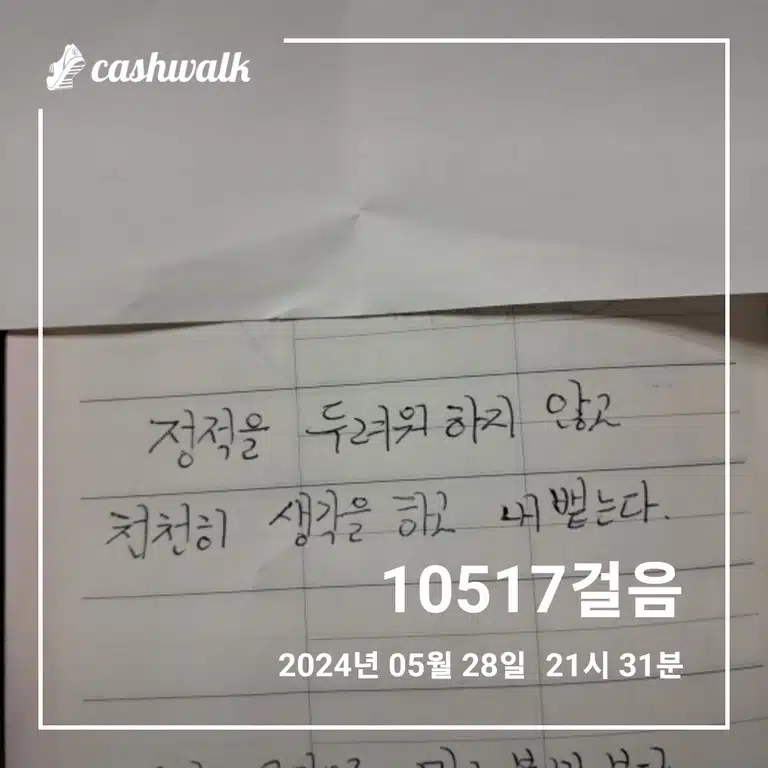 cashwalk
정적을 두려워 하지 않고
천천히 생각을 하고 내뱉는다.
10517걸음
2024년 05월 28일 21시 31분